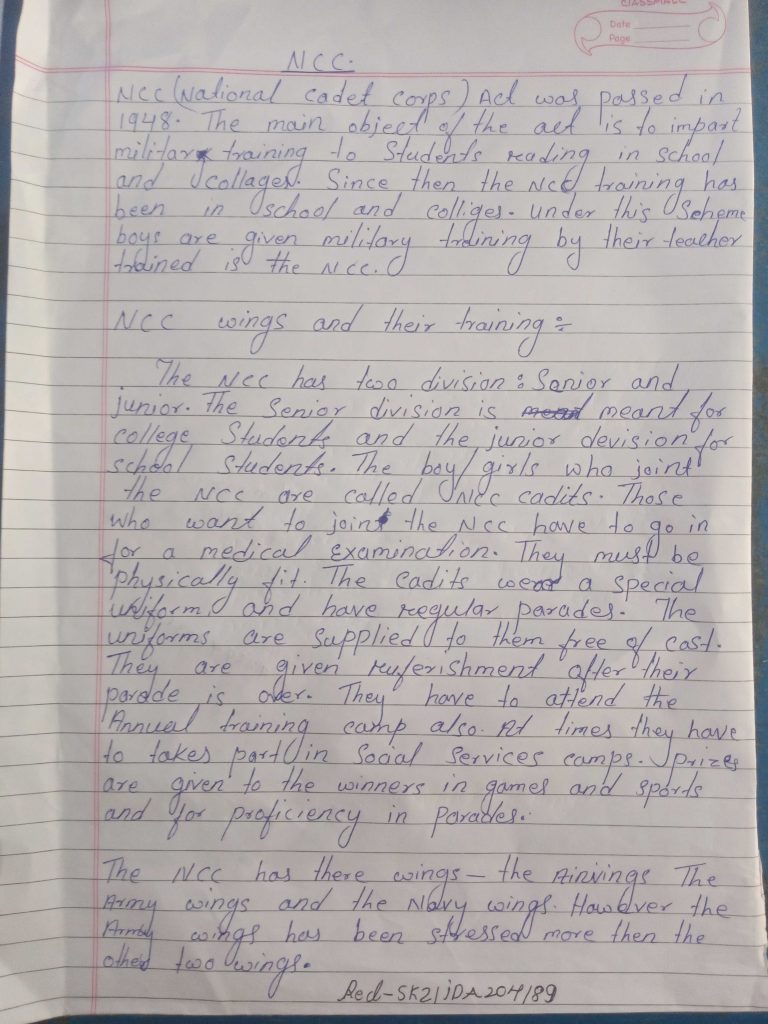 CLASSMATE
Date
Page
NCC.
NCC (National cadet corps) Act was passed in
1948. The main object of the act is to impart
military training to Students reading in school
and collages. Since then the NCC training has
been in school and colliges. under this Scheme
boys are given military training by their teacher
trained is the NCC.
NCC wings and their training :-
The NCC has two division : Sanior and
junior. The Senior division is meant for
college Students and the junior devision for
school Students. The boy/girls who joint
the NCC are called NCC cadits. Those
who want to joint the NCC have to go in
for a medical Examination. They must be
physically fit. The cadits wear a special
uniform and have regular parades. The
uniforms are supplied to them free of cost.
They are given ruferishment after their
parade is over. They have to attend the
Annual training camp also. At times they have
to takes part in Social Services camps. prizes
are given to the winners in games and sports
and for proficiency in Parades.
The NCC has there wings — the The
Army wings and the Navy wings. However the
Army wings has been stressed more then the
other two wings.
Red-SK21JDA204/89